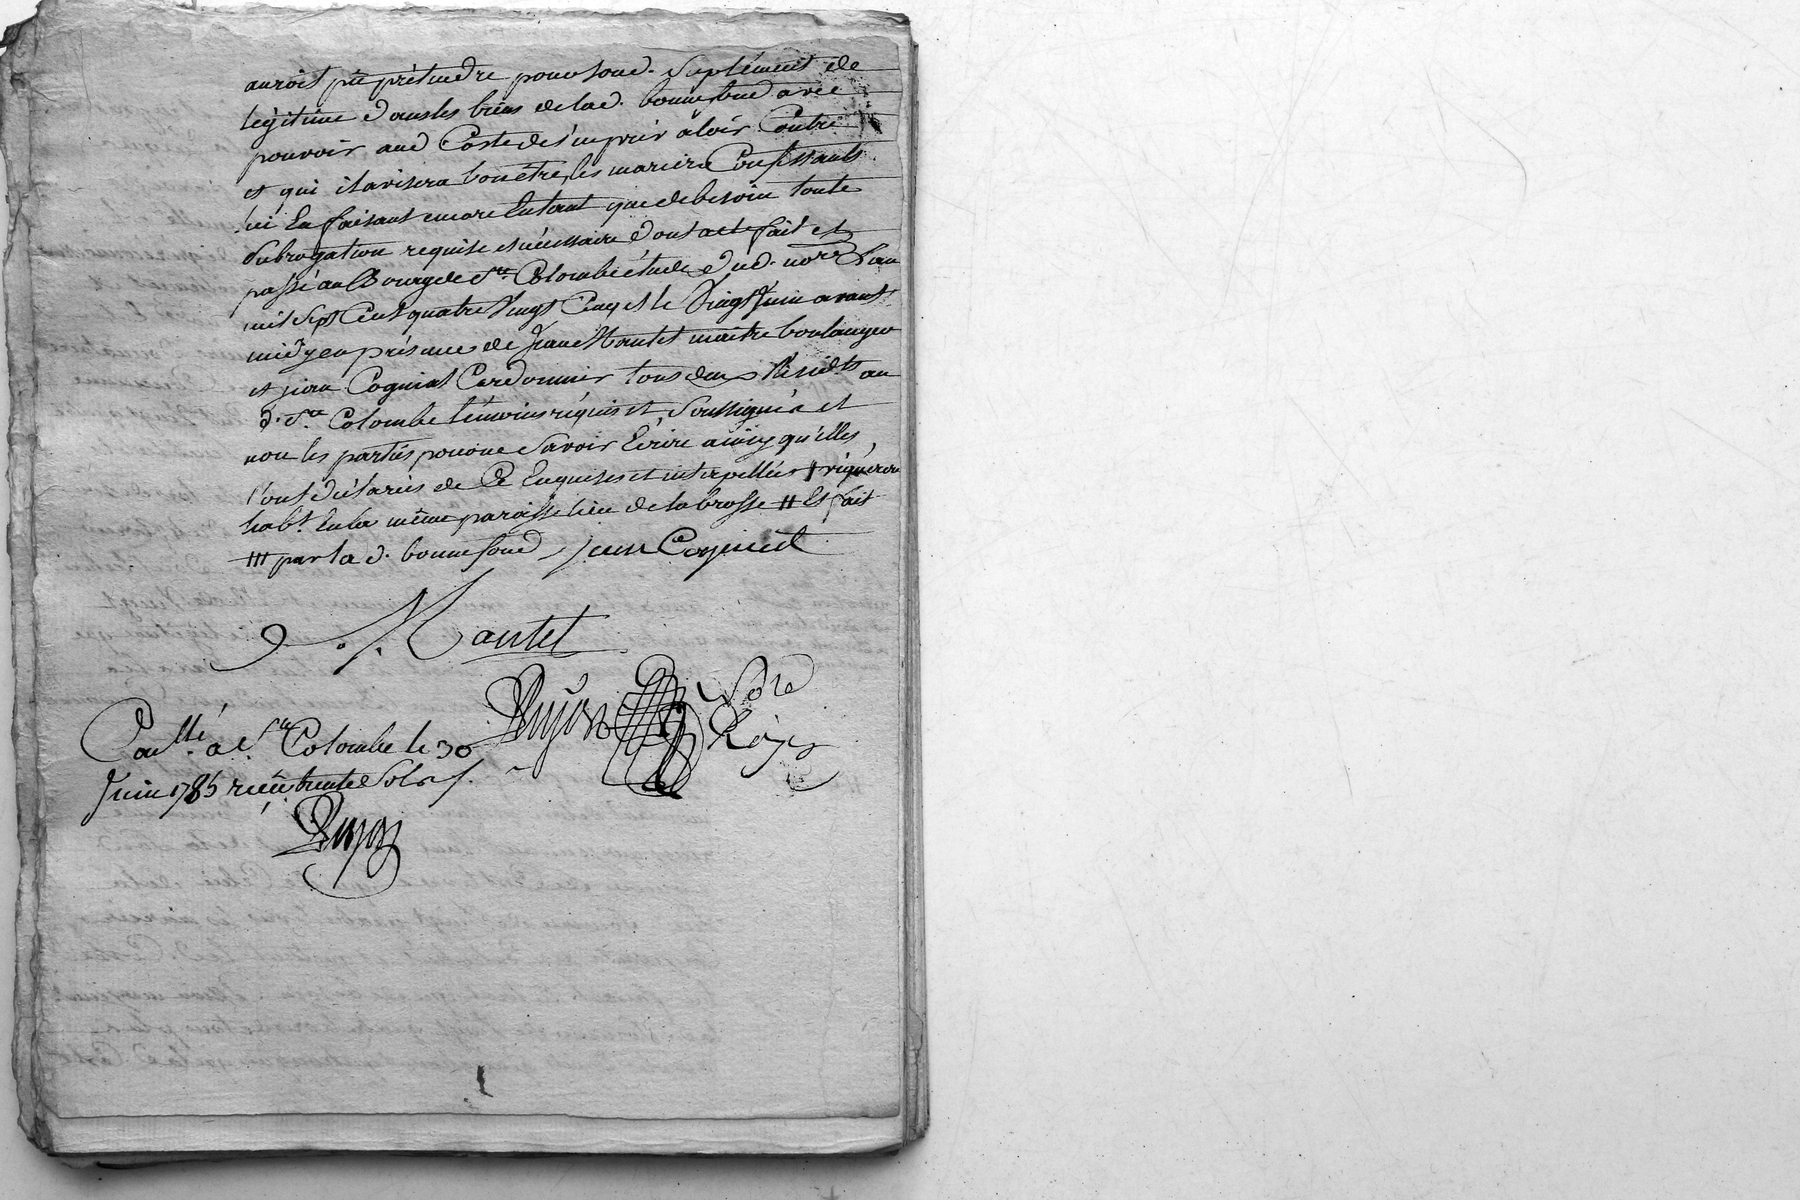 auroit pû prétendre pour soud. suplément de
légitime dans les biens de lad. bonnefond avec
pouvoir aud Coste de s'en prévaloir Contre
et qui il avisera bon être, les mariers Confessants
lui En faisant encore Entant que de besoin toute
subrogation requise et nécessaire dont acte fait et
passé au Bourg de Ste Colombe étude dud. nore L'an
mil sept Cent quatre Vingt Cinq et le Vingt Juin avant
midy en présence de Jean Mantet maitre boulanger
et jean Cogniat Cordonnier tous deux Résidts au
d. Ste Colombe témoins réquis et soussignés et
non les parties pour ne savoir Ecrire ainsy qu'elles
l'ont déclarés de Ce Enquises et interpellées # vigneron
habt. En la même paroisse lieu de la brosse # Et fait
### par lad. bonnefond jean Cogniat
Mantet
Pujon Nore
Royx
Coullé a Ste Colombe le 30
Juin 1785 reçu trente sols
Pujon